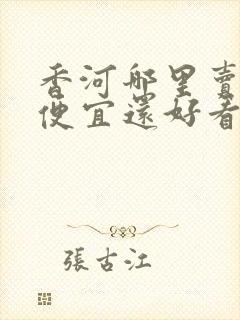 香河那里賣
便宜還好看
張古江